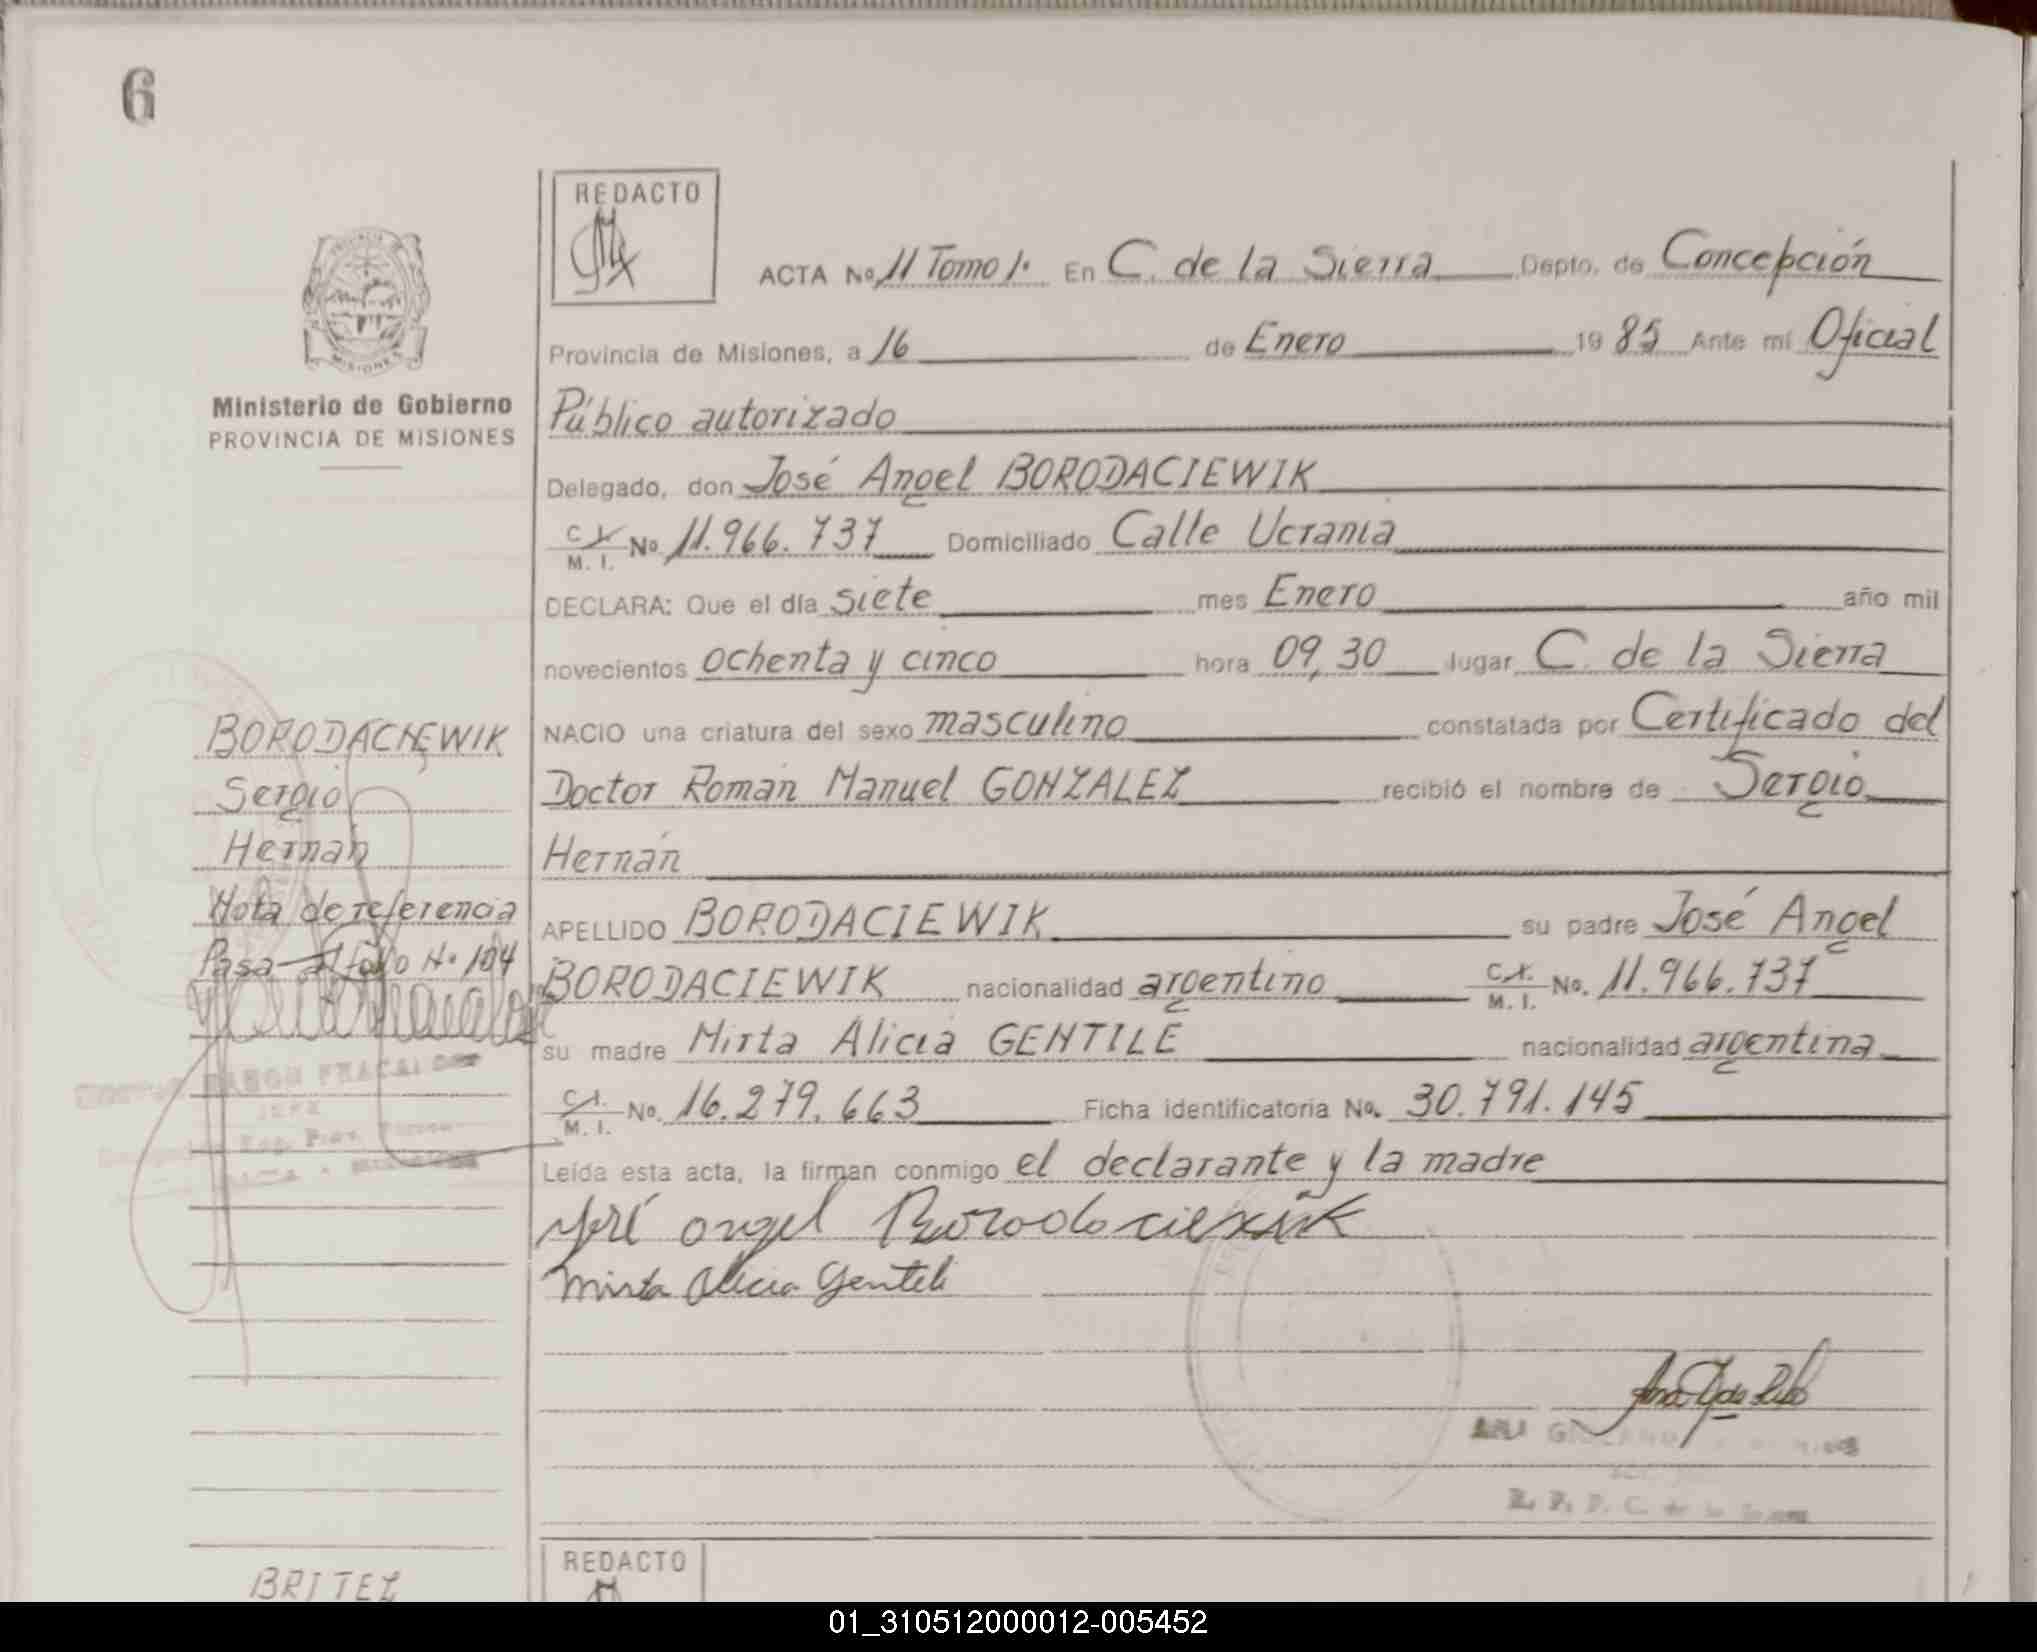 6
REDACTO
ACTA No. 11 Tomo 1. En C. de la Sierra Depto. de Concepción
Provincia de Misiones, a 16 de Enero 19 85 Ante mí Oficial
Público autorizado
Delegado, don José Angel BORODACIEWIK
C.I. M. I. No. 11.966.737 Domiciliado Calle Ucrania
DECLARA: Que el día siete mes Enero año mil
novecientos ochenta y cinco hora 09,30 lugar C. de la Sierra
NACIO una criatura del sexo masculino constatada por Certificado del
Doctor Román Manuel GONZALEZ recibió el nombre de Sergio
Hernán
APELLIDO BORODACIEWIK su padre José Angel
BORODACIEWIK nacionalidad argentino C.I. M. I. No. 11.966.737
su madre Mirta Alicia GENTILE nacionalidad argentina
C.I. M. I. No. 16.279.663 Ficha identificatoria No. 30.791.145
Leída esta acta, la firman conmigo el declarante y la madre
José angel Borodaciewik
Mirta Alicia Gentile
PROVINCIA DE
MISIONES
Ministerio de Gobierno
PROVINCIA DE MISIONES
BORODACIEWIK
Sergio
Hernán
Nota de referencia
Pasa al folio No 104
RAMON
JEFE
C. de la
REDACTO
BRITEZ
01_310512000012-005452